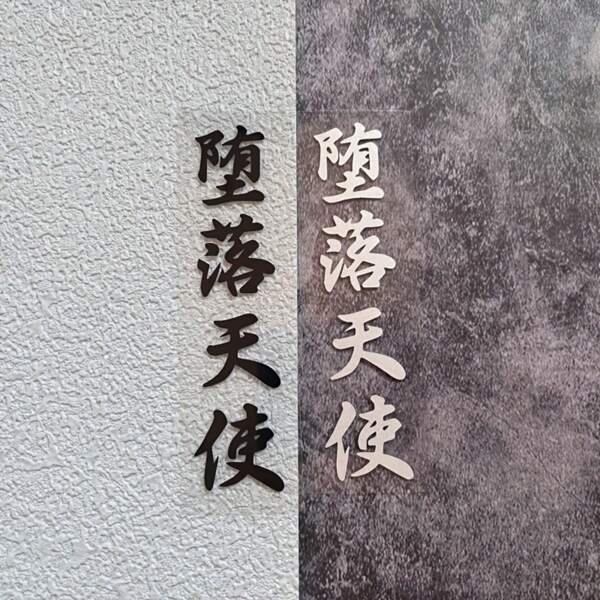 堕落天使
堕落天使